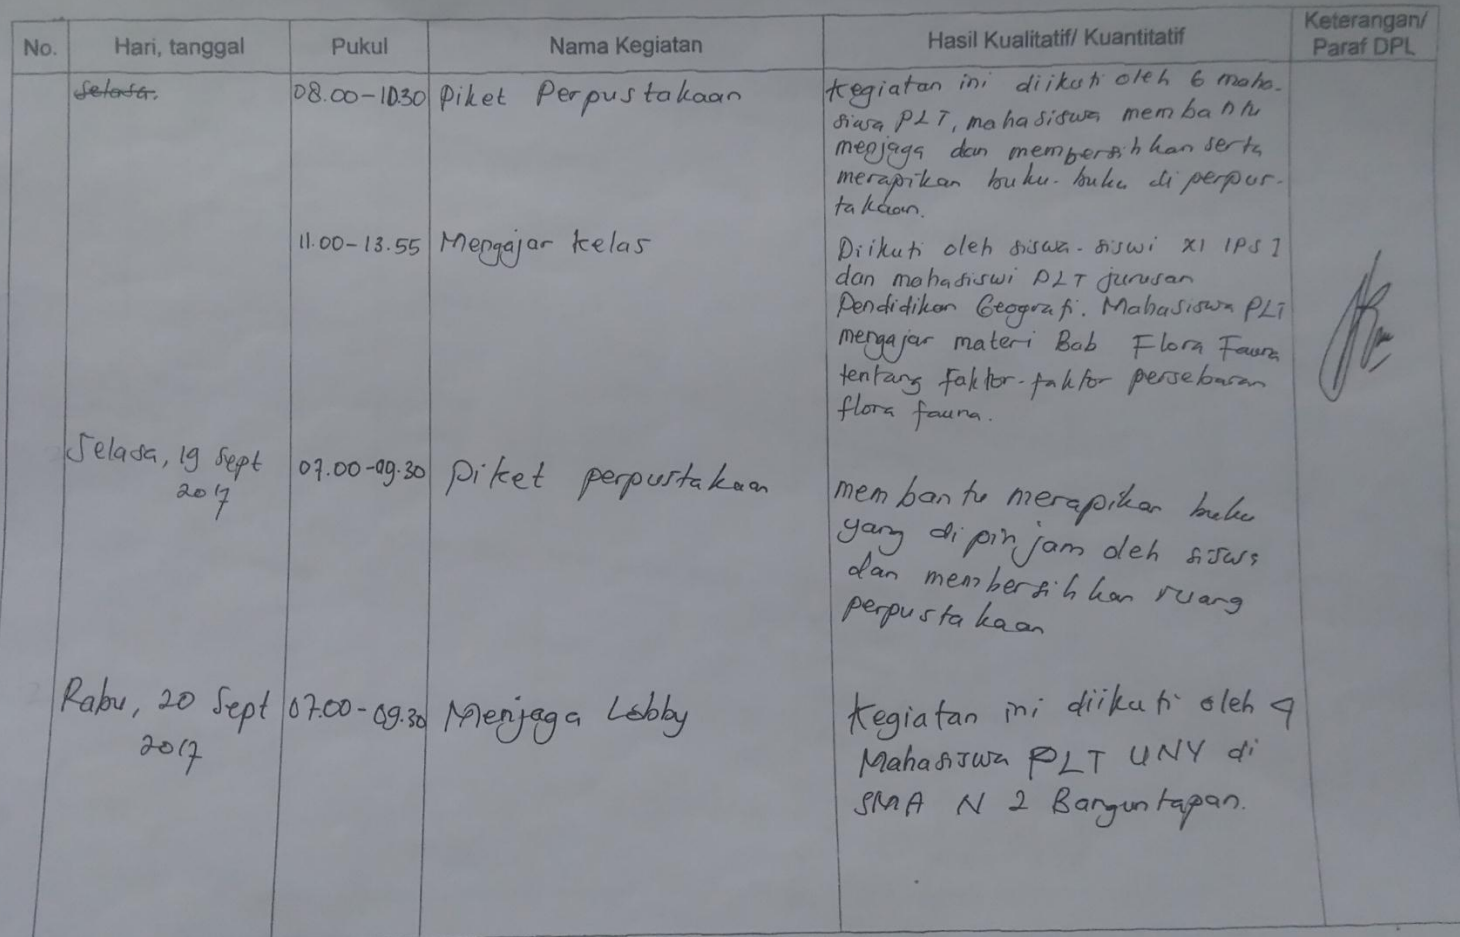 No.
Hari, tanggal
Pukul
Nama Kegiatan
Hasil Kualitatif/ Kuantitatif
Keterangan/
Paraf DPL
Selasa.
08.00-10.30
Piket Perpustakaan
Kegiatan ini diikuti oleh 6 maha-
siswa PLT, mahasiswa membantu
menjaga dan membersihkan serta
merapikan buku-buku di perpus-
takaan.
11.00-13.55
Mengajar kelas
Diikuti oleh siswa-siswi XI IPS 1
dan mahasiswi PLT jurusan
Pendidikan Geografi. Mahasiswa PLT
mengajar materi Bab Flora Fauna
tentang faktor-faktor persebaran
flora fauna.
Selasa, 19 Sept
2017
07.00-09.30
Piket perpustakaan
membantu merapikan buku
yang dipinjam oleh siswa
dan membersihkan ruang
perpustakaan
Rabu, 20 Sept
2017
07.00-09.30
Menjaga Lobby
Kegiatan ini diikuti oleh
Mahasiswa PLT UNY di
SMA N 2 Banguntapan.